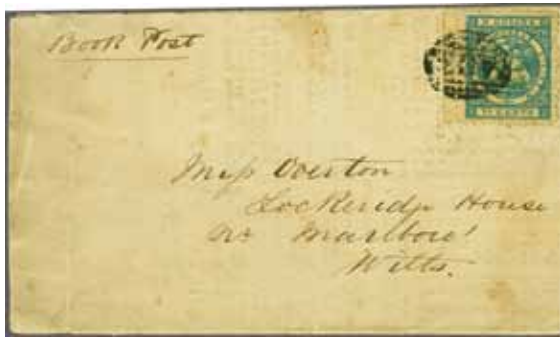 Book Post
Miss Overton
Lockeridge House
Nr Marlboro'
Wilts.